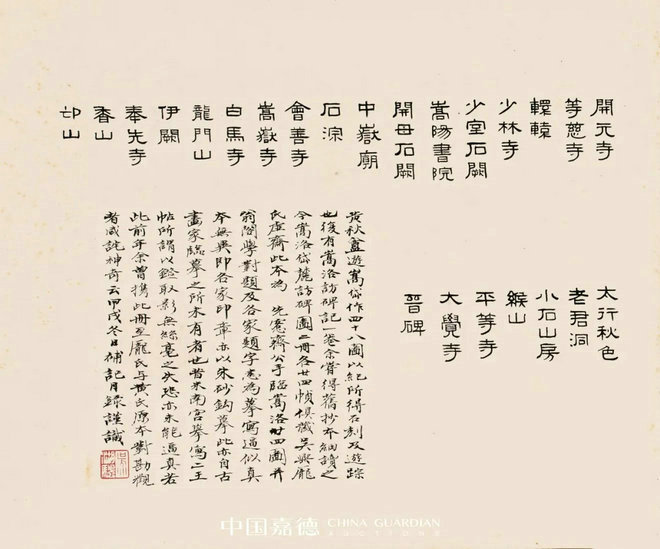 開元寺
等慈寺
轘轅
少林寺
少室石闕
嵩陽書院
開母石闕
中嶽廟
石淙
會善寺
嵩嶽寺
白馬寺
龍門山
伊闕
奉先寺
香山
邙山
太行秋色
老君洞
小石山房
緱山
平等寺
大覺寺
晉碑
黃秋盦遊嵩岱作四十八圖以紀所得石刻及遊踪
也復有嵩洛訪碑記一卷余嘗得舊抄本細讀之
今嵩洛岱麓訪碑圖二冊各廿四幀俱藏吳興龐
氏虛齋此本為 先愙齋公手臨嵩洛廿四圖并
翁閣學對題及各家題字悉為摹寫逼似真
本無異即各家印章亦以朱砂鈎摹此亦自古
畫家臨摹之所未有者也昔米南宮摹寫二王
帖所謂以鐙取影無絲毫之失恐亦未能逼真若
此前年余曾携此冊至龐氏與黃氏原本對勘觀
者咸詫神奇云甲戌冬日補記目錄謹識
中国嘉德 CHINA GUARDIAN
AUCTIONS